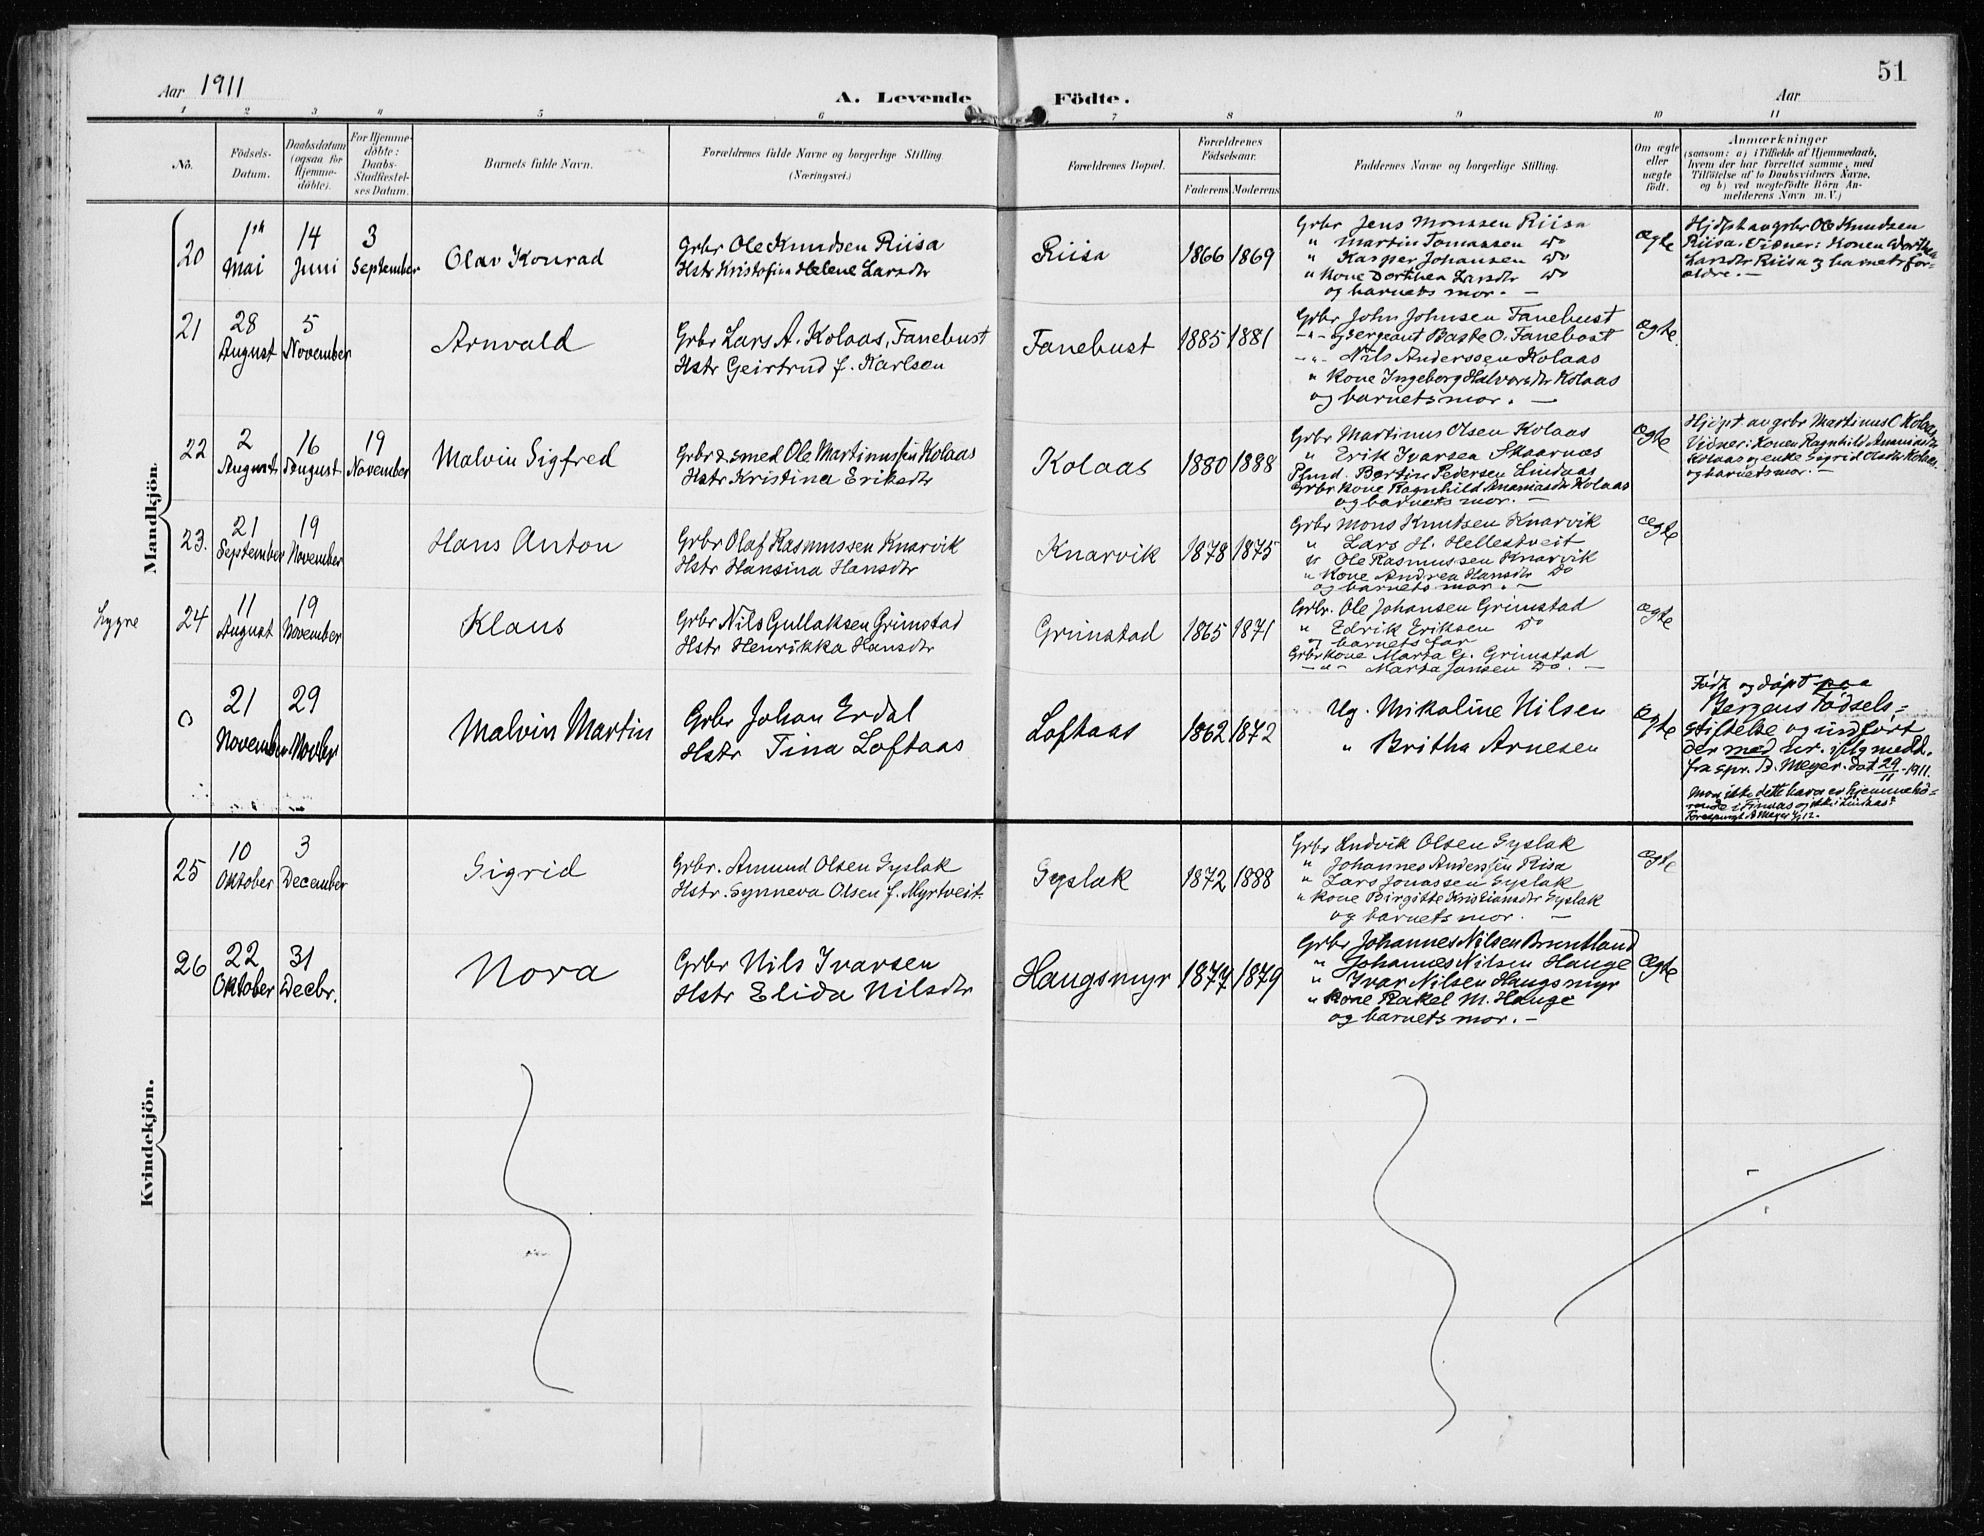 Aar 1911
A. Levende
Födte.
Aar
51
1 2 3 4 5 6 7 8 9 10 11
No.
Födsels-
Datum.
Daabsdatum
(ogsaa for
Hjemme-
döbte).
For Hjemme-
döbte:
Daabs-
Stadfæstel-
ses Datum.
Barnets fulde Navn.
Forældrenes fulde Navne og borgerlige Stilling.
(Næringsvei.)
Forældrenes Bopæl.
Forældrenes
Födselsaar.
Faderens
Moderens
Faddernes Navne og borgerlige Stilling.
Om ægte
eller
uægte
födt.
Anmærkninger
(saasom: a) i Tilfælde af Hjemmedaab,
hvem der har forrettet samme, med
Tilföielse af to Daabsvidners Navne,
og b) ved uægtefödte Börn An-
melderens Navn m. V.)
Mandkjön.
20
1ste
Mai
14
Juni
3
September
Olav Konrad
Grbr Ole Knudsen Riisa
Hstr Kristofina Helene Larsdtr
Riisa
1866
1869
Grbr Jens Monssen Riisa
" Martin Tomassen Do
" Kasper Johansen Do
" Kone Dorthea Larsdtr Do
og barnets mor. —
Ægte
Hjdpt av grbr Ole Knudsen
Riisa. Vidner: Konen Dorthea
Larsdtr Riisa og barnets for-
ældre. —
21
28
August
5
November
Arnvald
Grbr Lars A. Kolaas, Fanebust
Hstr Geirtrud f. Karlsen
Fanebust
1885
1881
Grbr John Johnsen Fanebust
-"- Sergeant Baste O. Fanebost
-"- Nils Anderssen Kolaas
" Kone Ingeborg Halvorsdtr Kolaas
og barnets mor. —
Ægte.
22
2
August
16
August
19
November
Malvin Sigfred
Grbr & smed Ole Martinussen Kolaas
Hstr Kristina Eriksdtr
Kolaas
1880
1888
Grbr Martinus Olsen Kolaas
" Erik Ivarsen Skaarnæs
Plmd. Bertin Pedersen Lindaas
Grbr Kone Ragnhild Ananiasdtr Kolaas
og barnets mor. —
Ægte
Hjdpt. av grbr Martinus O Kolaas
Vidner: Konen Ragnhild Ananiasdtr
Kolaas og enke Sigrid Olsdtr Kolaas.
og barnets mor. —
23.
21
September
19
November
Hans Anton
Grbr Olaf Rasmussen Knarvik
Hstr Hansina Hansdtr
Knarvik
1878
1875
Grbr Mons Knutsen Knarvik
" Lars H. Hellestveit
" Ole Rasmussen Knarvik
" Kone Andrea Hansdtr Do
og barnets mor. —
Ægte
Lygre
24
11
August
19
November
Klaus
Grbr Nils Gullaksen Grimstad
Hstr Henrikka Hansdtr
Grimstad
1865
1871
Grbr. Ole Johansen Grimstad
" Edvik Eriksen Do
og barnets far
Grbr kone Marta G. Grimstad
-"- Marta Jansen Do. —
Ægte
0
21
November
29
Novbr
Malvin Martin
Grbr Johan Erdal
Hstr Tina Loftaas
Loftaas
1862
1872
Ug. Mikaline Nilsen
" Britha Arnesen
Ægte
Født og døpt paa
Bergens Fødsels-
stiftelse og indført
der med nr. iflg medd.
fra spr. B. Meyer. dat 29/11-1911.
Mon ikke dette barn er hjemmehø-
rende i Finnaas og ikke i Lindaas?
Forespurgt B Meyer 4/1 12.
Kvindekjön.
25
10
Oktober
3
December
Sigrid
Grbr. Amund Olsen Syslak
Hstr. Synneva Olsen f. Myrtveit.
Syslak
1872
1888
Grbr Ludvik Olsen Syslak
" Johannes Anderssen Risa
" Lars Jonassen Syslak
" kone Birgitte Kristiansdtr Syslak
og barnets mor. —
Ægte
26
22
Oktober
31
Decbr.
Nora
Grbr Nils Ivarsen
Hstr Elida Nilsdtr
Haugsmyr
1877
1879
Grbr Johannes Nilsen Bruntland
" Johannes Nilsen Hauge
" Ivar Nilsen Haugsmyr
" Kone Rakel M. Hauge
og barnets mor. —
Ægte